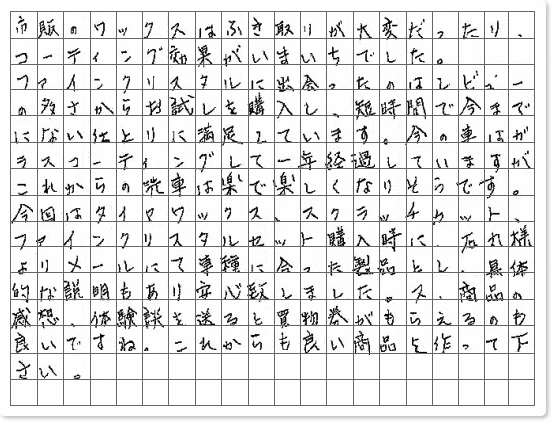 市販のワックスはふき取りが大変だったり、
コーティング効果がいまいちでした。
ファインクリスタルに出会ったのはレビュー
の多さからお試しを購入し、短時間で今まで
にない仕上りに満足しています。今の車はガ
ラスコーティングして一年経過していますが
これからの洗車は楽で楽しくなりそうです。
今回はタイヤワックス、スクラッチカット、
ファインクリスタルセット購入時に、石れ様
よりメールにて車種に合った製品とし、具体
的な説明もあり安心致しました。又、商品の
感想、体験談を送ると買物券がもらえるのも
良いですね。これからも良い商品を作って下
さい。